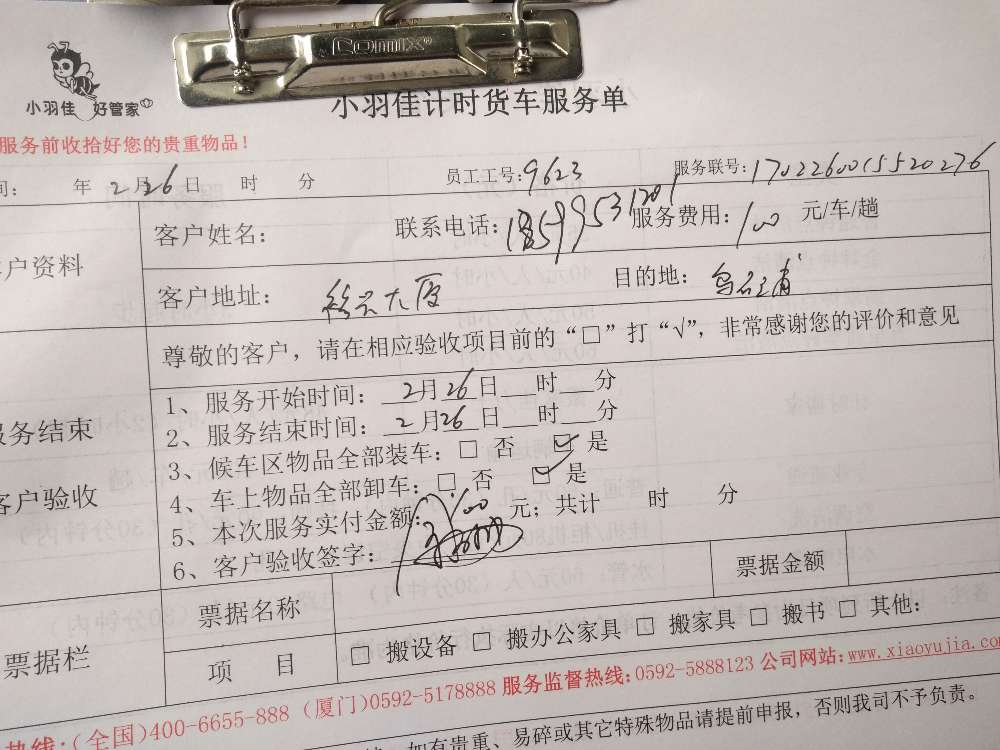 Comix
小羽佳 好管家
小羽佳计时货车服务单
服务前收拾好您的贵重物品!
间: 年 2月26日 时 分 员工工号:9623 服务联号:1702260015520276
客户资料
客户姓名: 联系电话:18599531201 服务费用:100 元/车/趟
客户地址: 大厦 目的地: 乌石浦
尊敬的客户，请在相应验收项目前的“□”打“√”，非常感谢您的评价和意见
服务结束
客户验收
1、服务开始时间: 2月26日 时 分
2、服务结束时间: 2月26日 时 分
3、候车区物品全部装车: □ 否 ☑ 是
4、车上物品全部卸车: □ 否 ☑ 是
5、本次服务实付金额: 100 元; 共计 时 分
6、客户验收签字:
票据栏
票据名称 票据金额
项 目 □ 搬设备 □ 搬办公家具 □ 搬家具 □ 搬书 □ 其他:
热线:(全国)400-6655-888 (厦门)0592-5178888 服务监督热线:0592-5888123 公司网站:www.xiaoyujia.com
如有贵重、易碎或其它特殊物品请提前申报，否则我司不予负责。